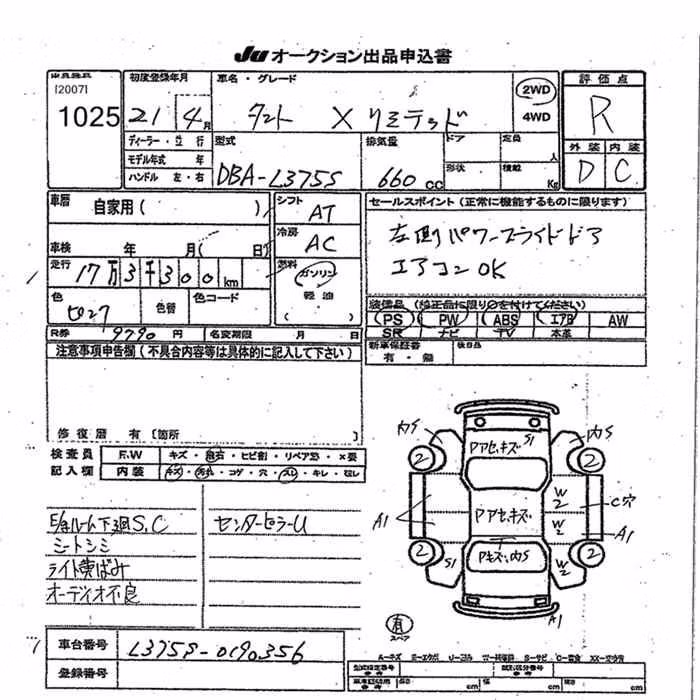 Ju オークション出品申込書
[2007]
1025
初度登録年月
21 4月
車名・グレード
タント X リミテッド
2WD
4WD
評価点
R
ディーラー・並行
モデル年式 年
ハンドル 左・右
型式
DBA-L375S
排気量
660 cc
ドア
形状
定員
人
積載
Kg
外装 内装
D C
車歴
自家用( )
シフト
AT
冷房
AC
燃料
ガソリン
軽油
( )
セールスポイント(正常に機能するものに限ります)
左側パワースライドドア
エアコンOK
車検 年 月( 日)
走行 17万3千300km
色
色替
色コード
装備品(純正品に限り○を付けてください)
PS PW ABS エアB AW
SR ナビ TV 本革
R券 9790 円
名変期限 月 日
新車保証書
有・無
後日品
注意事項申告欄(不具合内容等は具体的に記入して下さい)
修復歴 有〔箇所 〕
検査員
記入欄
F.W キズ・飛石・ヒビ割・リペア済・×要
内装 キズ・汚れ・コゲ・穴・スレ・キレ・ムシ
下回S,C
センターピラーU
シートシミ
ライト黄ばみ
オーディオ不良
内S
PアセキズS1
内S
2
2
W2
C穴
A1
PアセキズW2
A1
2
S1
Pキズ、内S
W2
2
A1
有
スペア
車台番号 L375S-0190356
登録番号
A=キズ E=エクボ U=凹み W=補修跡 S=サビ C=腐食 XX=交換済
型式指定番号
類別区分番号
長さ cm
幅 cm
高さ cm